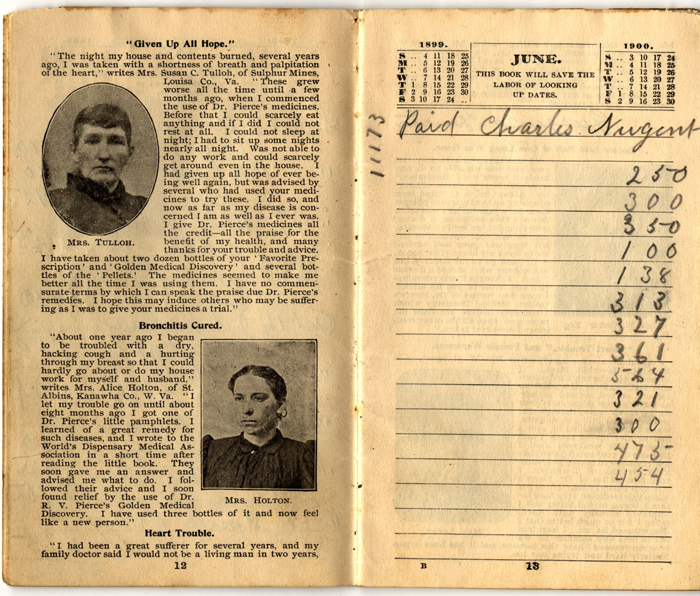 "Given Up All Hope."
"The night my house and contents burned, several years
ago, I was taken with a shortness of breath and palpitation
of the heart," writes Mrs. Susan C. Tulloh, of Sulphur Mines,
Louisa Co., Va. "These grew
worse all the time until a few
months ago, when I commenced
the use of Dr. Pierce's medicines.
Before that I could scarcely eat
anything and if I did I could not
rest at all. I could not sleep at
night; I had to sit up some nights
nearly all night. Was not able to
do any work and could scarcely
get around even in the house. I
had given up all hope of ever be-
ing well again, but was advised by
several who had used your medi-
cines to try these. I did so, and
now as far as my disease is con-
cerned I am as well as I ever was.
I give Dr. Pierce's medicines all
the credit—all the praise for the
benefit of my health, and many
thanks for your trouble and advice.
MRS. TULLOH.
I have taken about two dozen bottles of your 'Favorite Pre-
scription' and 'Golden Medical Discovery' and several bot-
tles of the 'Pellets.' The medicines seemed to make me
better all the time I was using them. I have no commen-
surate terms by which I can speak the praise due Dr. Pierce's
remedies. I hope this may induce others who may be suffer-
ing as I was to give your medicines a trial."
Bronchitis Cured.
"About one year ago I began
to be troubled with a dry,
hacking cough and a hurting
through my breast so that I could
hardly go about or do my house
work for myself and husband,"
writes Mrs. Alice Holton, of St.
Albins, Kanawha Co., W. Va. "I
let my trouble go on until about
eight months ago I got one of
Dr. Pierce's little pamphlets. I
learned of a great remedy for
such diseases, and I wrote to the
World's Dispensary Medical As-
sociation in a short time after
reading the little book. They
soon gave me an answer and
advised me what to do. I fol-
lowed their advice and I soon
found relief by the use of Dr.
R. V. Pierce's Golden Medical
MRS. HOLTON.
Discovery. I have used three bottles of it and now feel
like a new person."
Heart Trouble.
"I had been a great sufferer for several years, and my
family doctor said I would not be a living man in two years,
12
1899.
S .. 4 11 18 25
M .. 5 12 19 26
T .. 6 13 20 27
W .. 7 14 21 28
T 1 8 15 22 29
F 2 9 16 23 30
S 3 10 17 24 ..
JUNE.
THIS BOOK WILL SAVE THE
LABOR OF LOOKING
UP DATES.
1900.
S .. 3 10 17 24
M .. 4 11 18 25
T .. 5 12 19 26
W .. 6 13 20 27
T .. 7 14 21 28
F 1 8 15 22 29
S 2 9 16 23 30
11173
Paid Charles Nugent
250
300
350
100
138
313
327
361
564
321
300
475
454
B
13